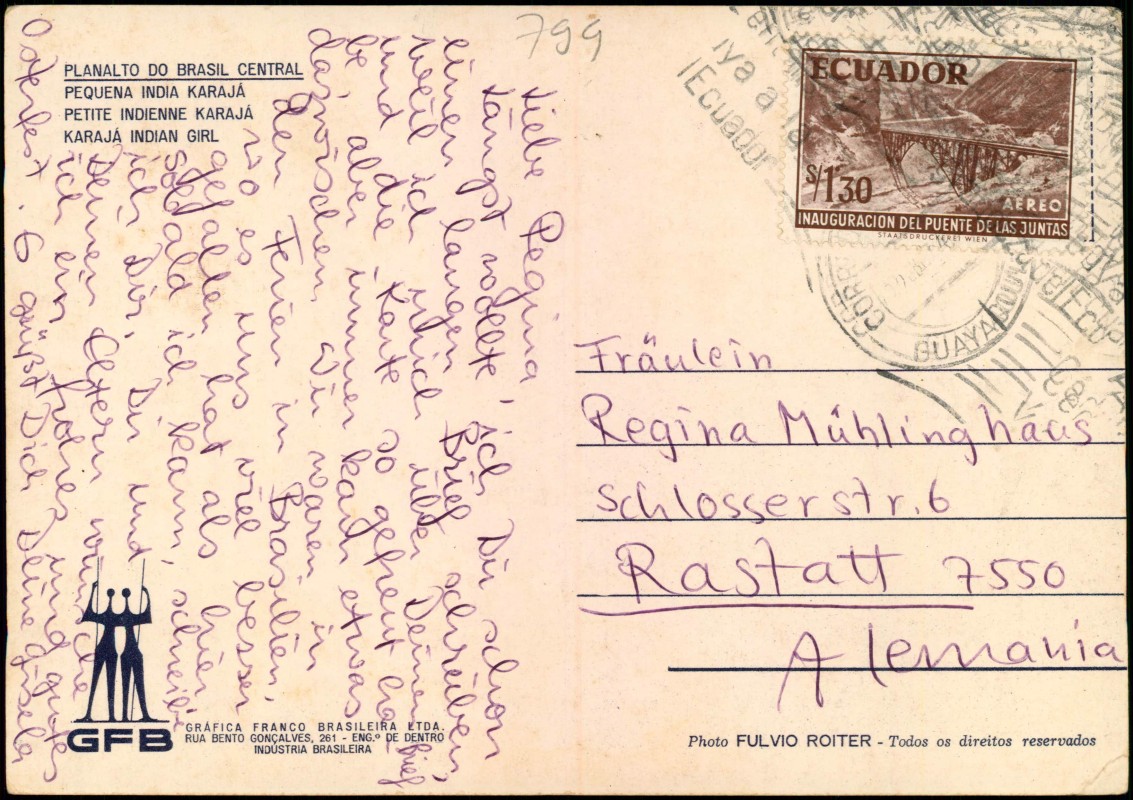 799
PLANALTO DO BRASIL CENTRAL
PEQUENA INDIA KARAJÁ
PETITE INDIENNE KARAJÁ
KARAJÁ INDIAN GIRL
Liebe Regina,
längst wollte ich Dir schon
einen langen Brief schreiben,
weil ich mich über Deinen Brief
und die Karte so gefreut ha-
be, aber immer kam etwas
dazwischen. Wir waren in
den Ferien in Brasilien,
wo es uns viel besser
gefallen hat als hier.
Sobald ich kann, schreibe
ich Dir. Dir und
Deinen Eltern wünsche
ich ein frohes und gutes
Osterfest. Es grüßt Dich Deine Gisela
GFB
GRÁFICA FRANCO BRASILEIRA LTDA.
RUA BENTO GONÇALVES, 261 - ENG.º DE DENTRO
INDÚSTRIA BRASILEIRA
ECUADOR
S/1'30
AEREO
INAUGURACION DEL PUENTE DE LAS JUNTAS
STAATSDRUCKEREI WIEN
(Ecuador
GUAYAQUIL
Fräulein
Regina Mühlinghaus
Schlosserstr. 6
Rastatt 7550
Alemania
Photo FULVIO ROITER - Todos os direitos reservados